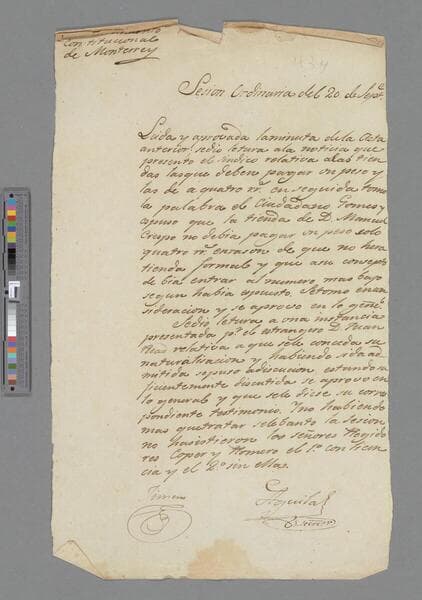 Constitucional
de Monterrey
Sesion Ordinaria del 20 de Sept.
Leida y aprovada la minuta de la Acta
anterior se dio letura a la noticia que
presento el Sindico relativa a las tien
das las que deben pagar un peso y
las de a quatro rr. en seguida tomo
la palabra el Ciudadano Gomes y
espuso que la tienda de D. Manuel
Crespo no debia pagar un peso solo
quatro rr. en rason de que no hera
tienda formal y que a su consepto
debia entrar al numero mas bajo
segun habia espuesto. Se tomo en con
sideracion y se aprovo en lo genl.
Se dio letura a una instancia
presentada pr. el estrangero D. Juan
relativa a que se le conceda su
naturalisacion y habiendo sido ad
mitida se puso a discucion estando su
ficientemente discutida se aprovo en
lo general y que se le diese su corres
pondiente testimonio. Y no habiendo
mas que tratar se lebanto la sesion
no hasistieron los señores Regido
res Coper y Romero el 1o. con licen
cia y el 2o. sin ella.